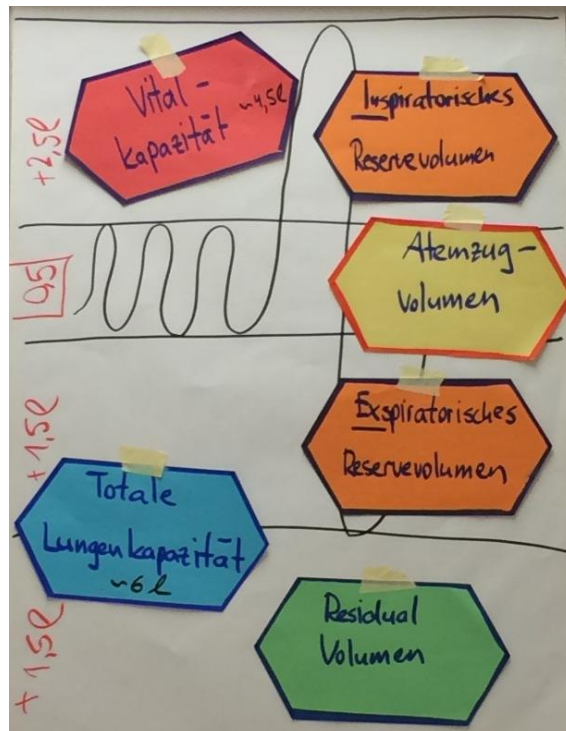 Vital-
kapazität ~4,5l
Inspiratorisches
Reservevolumen
+2,5l
Atemzug-
volumen
0,5
Exspiratorisches
Reservevolumen
+1,5l
Totale
Lungenkapazität
~6l
Residual
Volumen
+1,5l